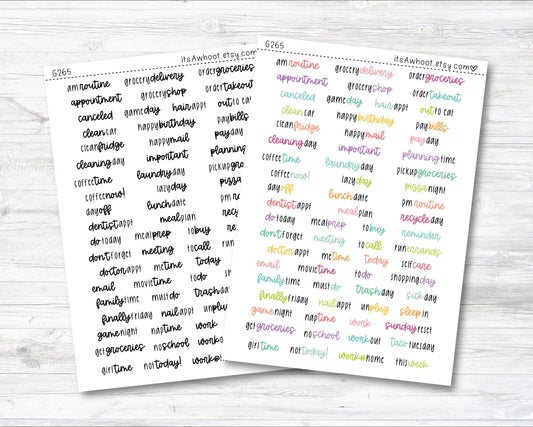 G265 itsAwhoot.etsy.com
am routine grocery delivery order groceries
appointment grocery shop order takeout
canceled game day hair appt out to eat
clean car happy birthday pay bills
clean fridge happy mail pay day
cleaning day important planning
coffee time laundry day pickup groceries
coffee now! lazy day pizza
day off lunch date pm routine
dentist appt meal plan recycle
do today meal prep to buy
don't forget meeting to call run
doctor appt me time today
email movie time to do
family time must do trash day
finally friday nail appt
game night nap time work
get groceries no school work
girl time not today!
G265 itsAwhoot.etsy.com♡
am routine grocery delivery order groceries
appointment grocery shop order takeout
canceled game day hair appt out to eat
clean car happy birthday pay bills
clean fridge happy mail pay day
cleaning day important planning time
coffee time laundry day pickup groceries
coffee now! lazy day pizza night
day off lunch date pm routine
dentist appt meal plan recycle day
do today meal prep to buy reminder
don't forget meeting to call run errands
doctor appt me time today self care
email movie time to do shopping day
family time must do trash day sick day
finally friday nail appt unplug sleep in
game night nap time work sunday reset
get groceries no school work out taco tuesday
girl time not today! work@home this week